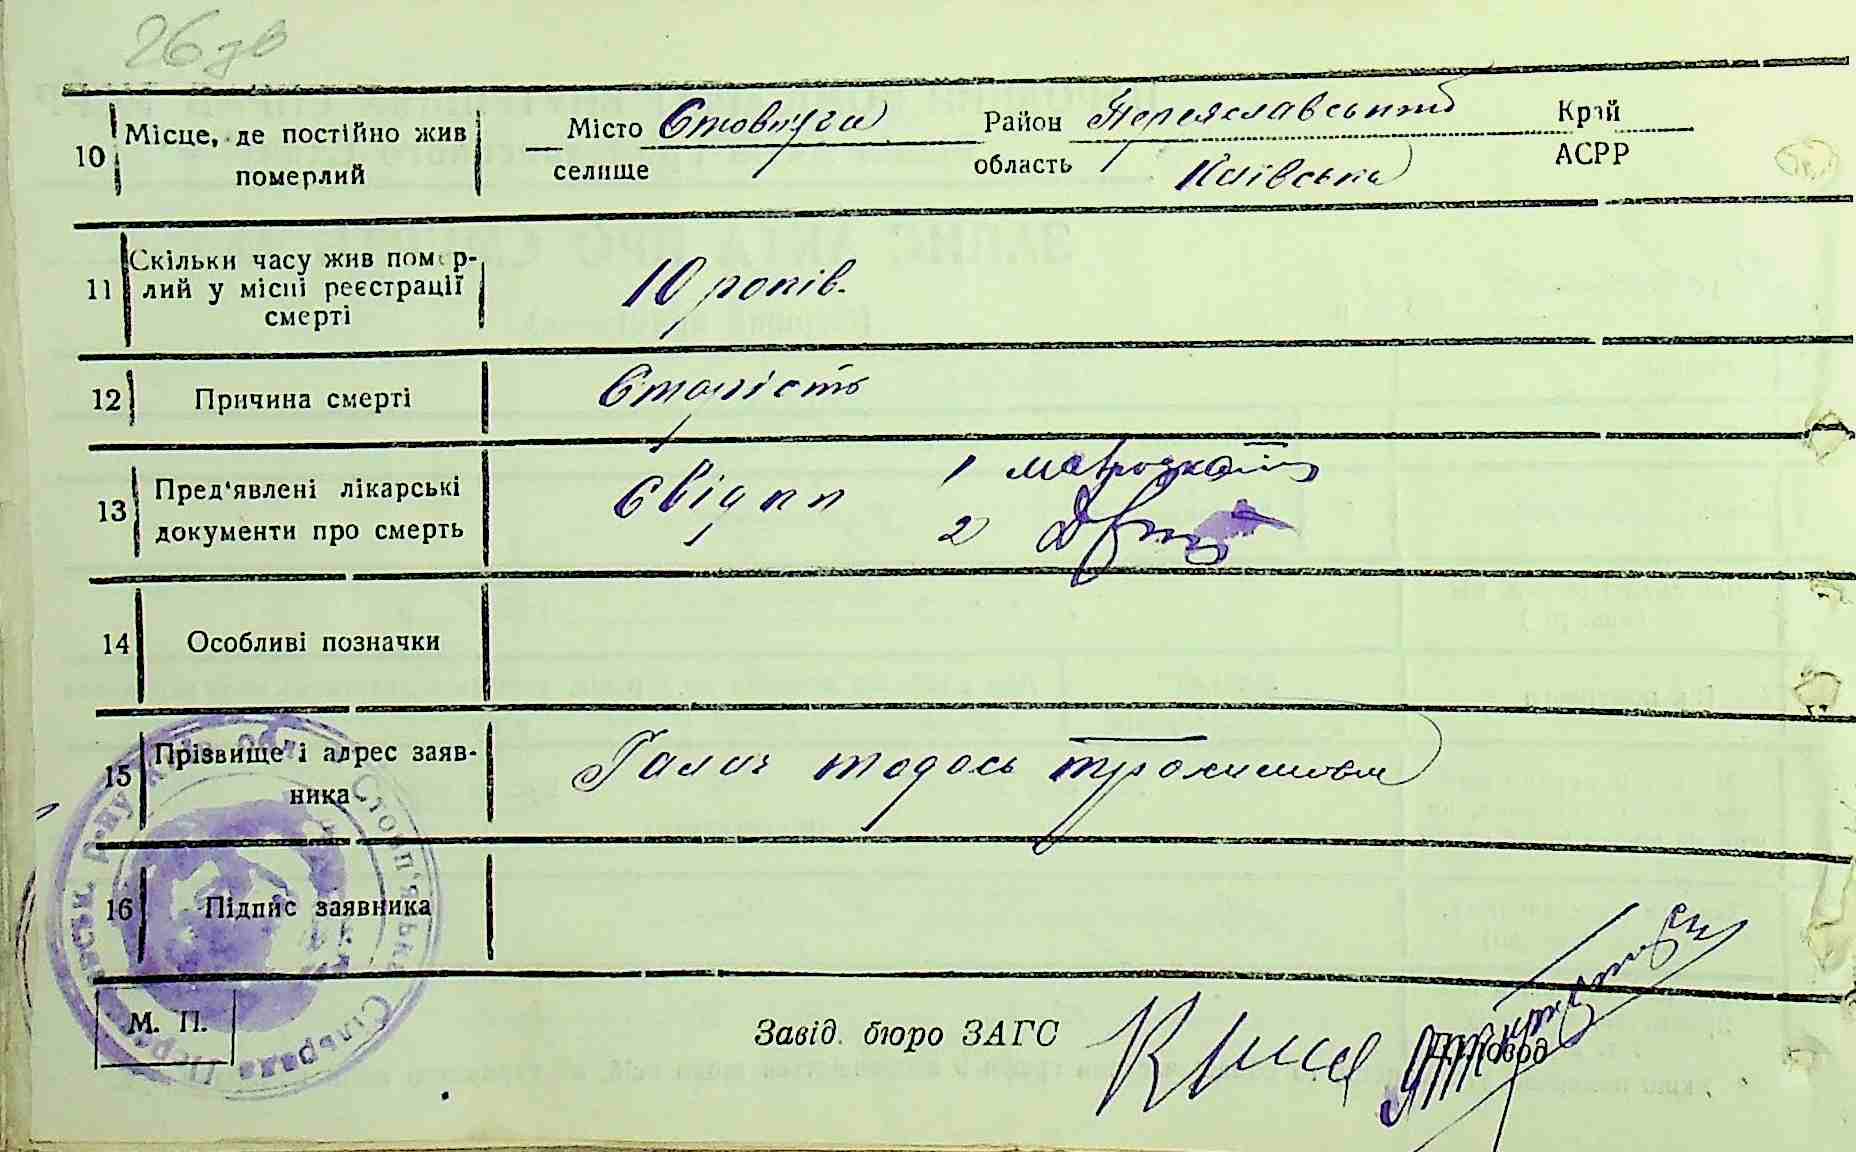 26 зв
10 Місце, де постійно жив померлий
Місто Стовпуги Район Переяславський Край
селище область Київська АСРР
11 Скільки часу жив помер-
лий у місці реєстрації
смерті
10 років.
12 Причина смерті Старість
13 Пред'явлені лікарські
документи про смерть
Свідки 1
2
14 Особливі позначки
15 Прізвище і адрес заяв-
ника
Галич Тодось
16 Підпис заявника
М. П.
Завід. бюро ЗАГС Діловод
Стовп'язька Сільрада